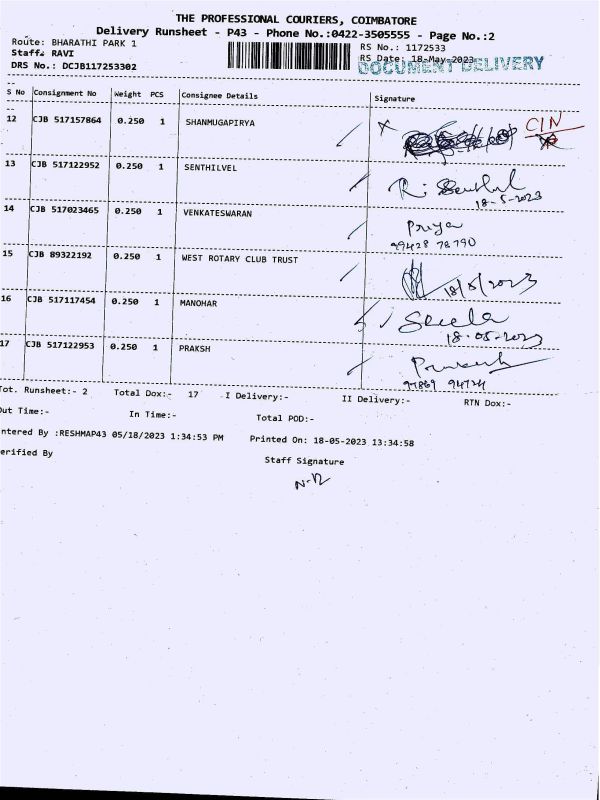 THE PROFESSIONAL COURIERS, COIMBATORE
Delivery Runsheet - P43 - Phone No.:0422-3505555 - Page No.:2
Route: BHARATHI PARK 1 RS No.: 1172533
Staff: RAVI RS Date: 18-May-2023
DRS No.: DCJB117253302 DOCUMENT DELIVERY
S No Consignment No Weight PCS Consignee Details Signature
12 CJB 517157864 0.250 1 SHANMUGAPIRYA CIN
13 CJB 517122952 0.250 1 SENTHILVEL R. Senthil
18-5-2023
14 CJB 517023465 0.250 1 VENKATESWARAN Priya
99428 78790
15 CJB 89322192 0.250 1 WEST ROTARY CLUB TRUST 18/5/2023
16 CJB 517117454 0.250 1 MANOHAR Sheela
18-05-2023
17 CJB 517122953 0.250 1 PRAKSH
Tot. Runsheet:- 2 Total Dox:- 17 I Delivery:- II Delivery:- RTN Dox:-
Out Time:- In Time:- Total POD:-
ntered By :RESHMAP43 05/18/2023 1:34:53 PM Printed On: 18-05-2023 13:34:58
erified By Staff Signature